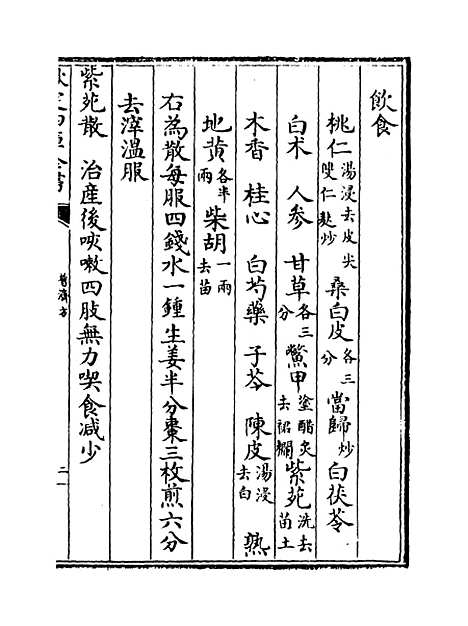 飲食
桃仁湯浸去皮尖雙仁麩炒 桑白皮各三分 當歸炒 白茯苓
白术 人參 甘草各三分 鱉甲塗醋炙去裙襴 紫菀洗去苗土
木香 桂心 白芍藥 子芩 陳皮湯浸去白 熟
地黄各半兩 柴胡一兩去苗
右為散每服四錢水一鍾生姜半分棗三枚煎六分
去滓溫服
紫菀散 治産後咳嗽四肢無力喫食减少
普濟方